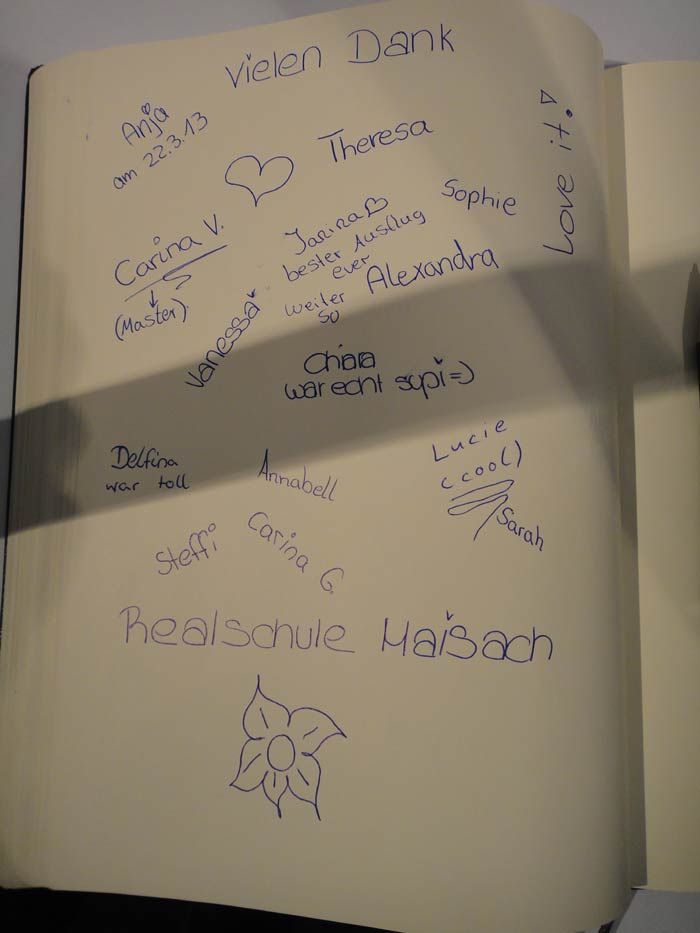 Vielen Dank
Anja
am 22.3.13
Theresa
Love it.
Sophie
Carina V.
(Master)
Janina
bester Ausflug
ever
weiter
so
Alexandra
Vanessa
Chiara
war echt supi =)
Delfina
war toll
Annabell
Lucie
(cool)
Sarah
Steffi
Carina G.
Realschule Maisach